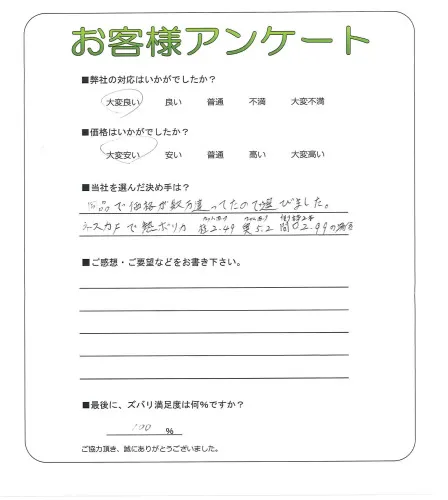 お客様アンケート
■弊社の対応はいかがでしたか?
大変良い 良い 普通 不満 大変不満
■価格はいかがでしたか?
大変安い 安い 普通 高い 大変高い
■当社を選んだ決め手は?
品で価格が数万違ってたので選びました。
で 2.49 5.2 2.99の
■ご感想・ご要望などをお書き下さい。
■最後に、ズバリ満足度は何%ですか?
100 %
ご協力頂き、誠にありがとうございました。